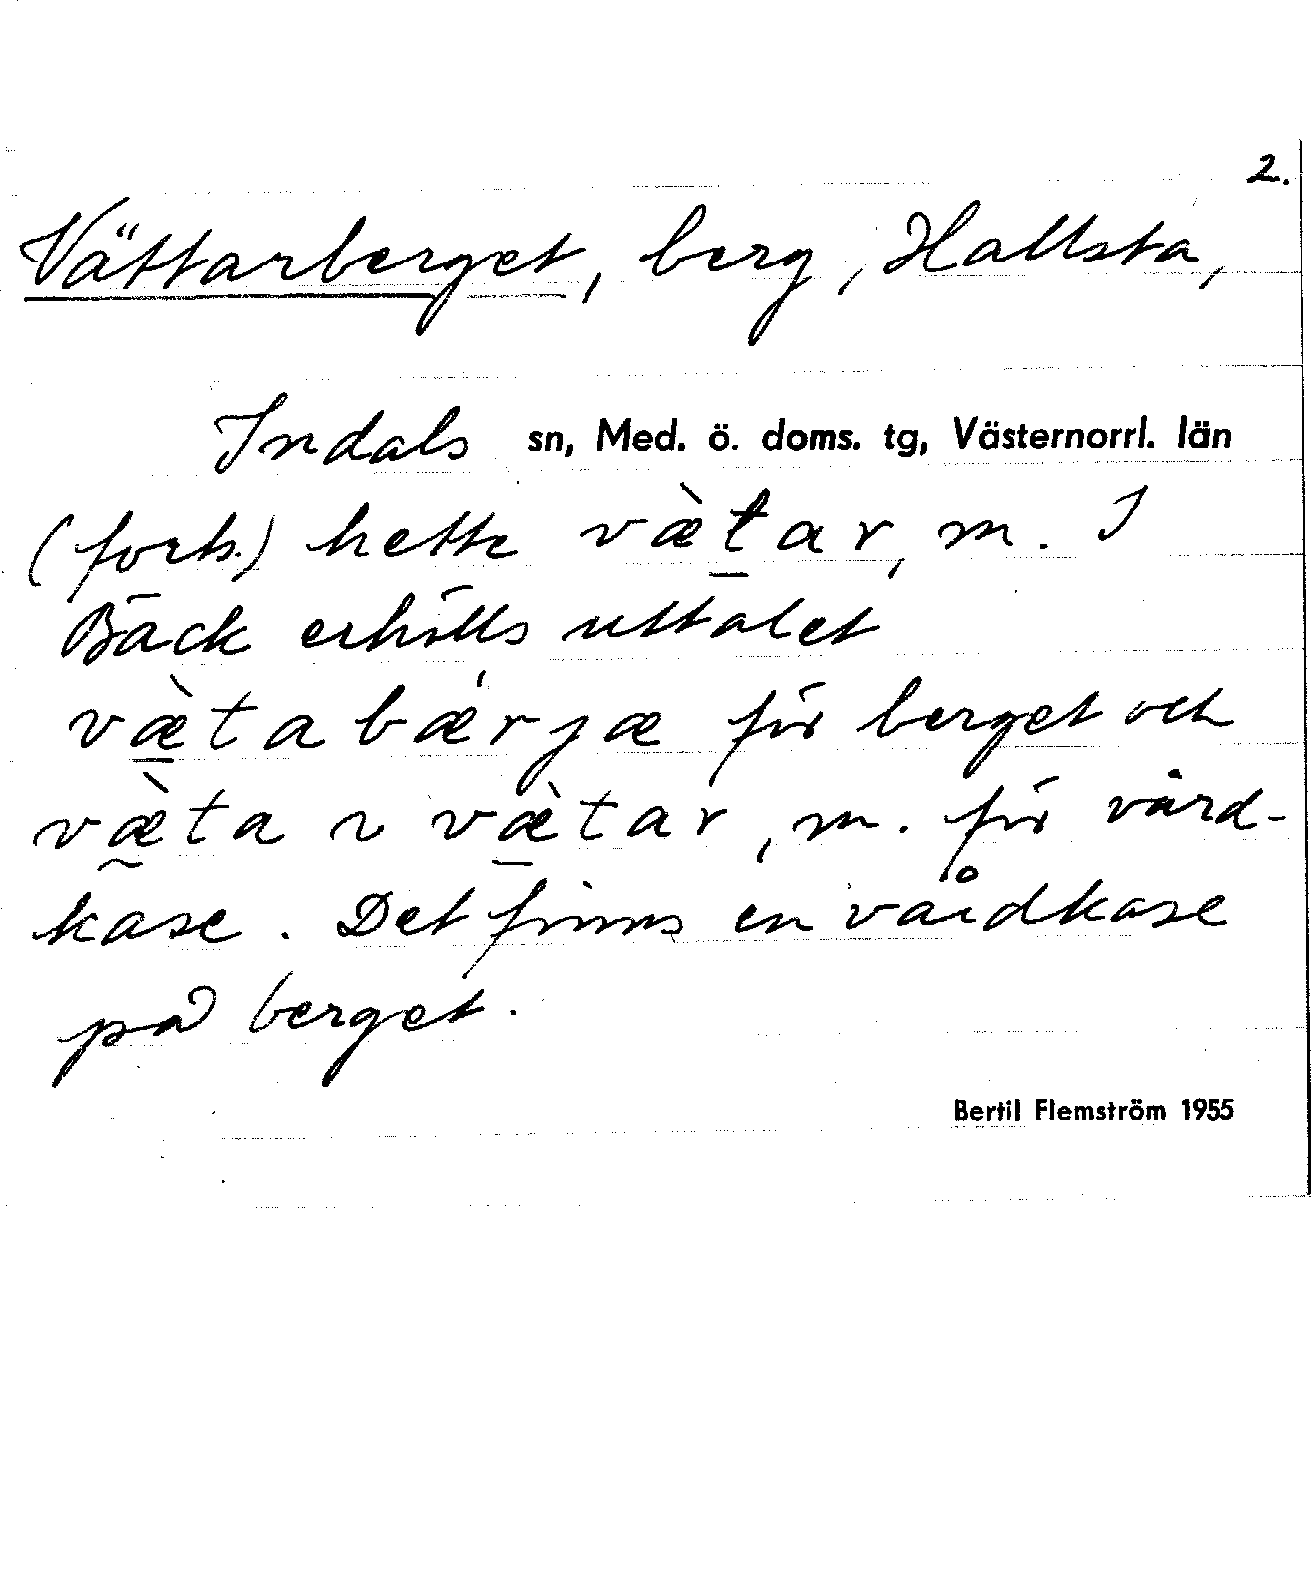 2.
Vättarberget, berg, Hallsta,
Indals sn, Med. ö. doms. tg, Västernorrl. län
(forts.) hette væ̀t̠ar, m. I
Bäck erhölls uttalet
væ̠̀tabǽrjæ för berget och
væ̰̀ta ~ væ̠̀tar, m. för vård-
kase. Det finns en vårdkase
på berget.
Bertil Flemström 1955